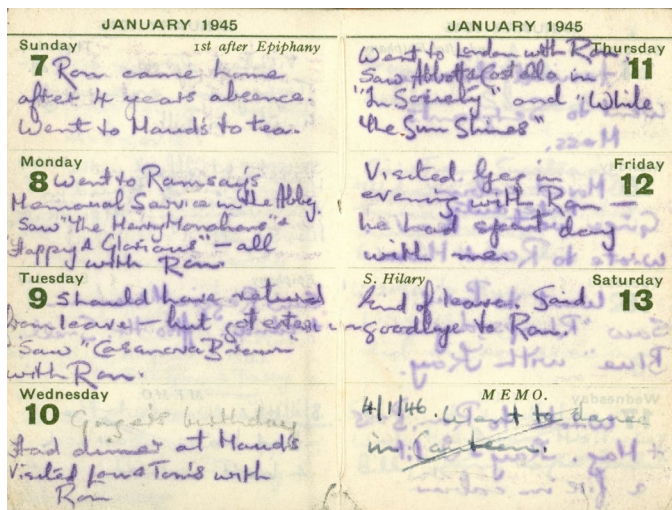 JANUARY 1945
Sunday 1st after Epiphany
7 Ron came home
after 4 years absence.
Went to Maud's to tea.
Monday
8 Went to Ramsay's
Memorial Service in the Abbey.
Saw "The Merry Monahans" &
"Happy & Glorious" – all
with Ron.
Tuesday
9 Should have returned
from leave – but got
Saw "Casanova Brown"
with Ron.
Wednesday
10 birthday
Had dinner at Maud's
Visited & Tom's with
Ron
JANUARY 1945
Thursday
11
Went to London with Ron
Saw Abbott & Costello in
"In Society" and "While
the Sun Shines"
Friday
12
Visited in
evening with Ron –
he had spent day
with me
S. Hilary Saturday
13
End of leave. Said
goodbye to Ron.
MEMO.
4/1/46. Went to dance
in Canteen.